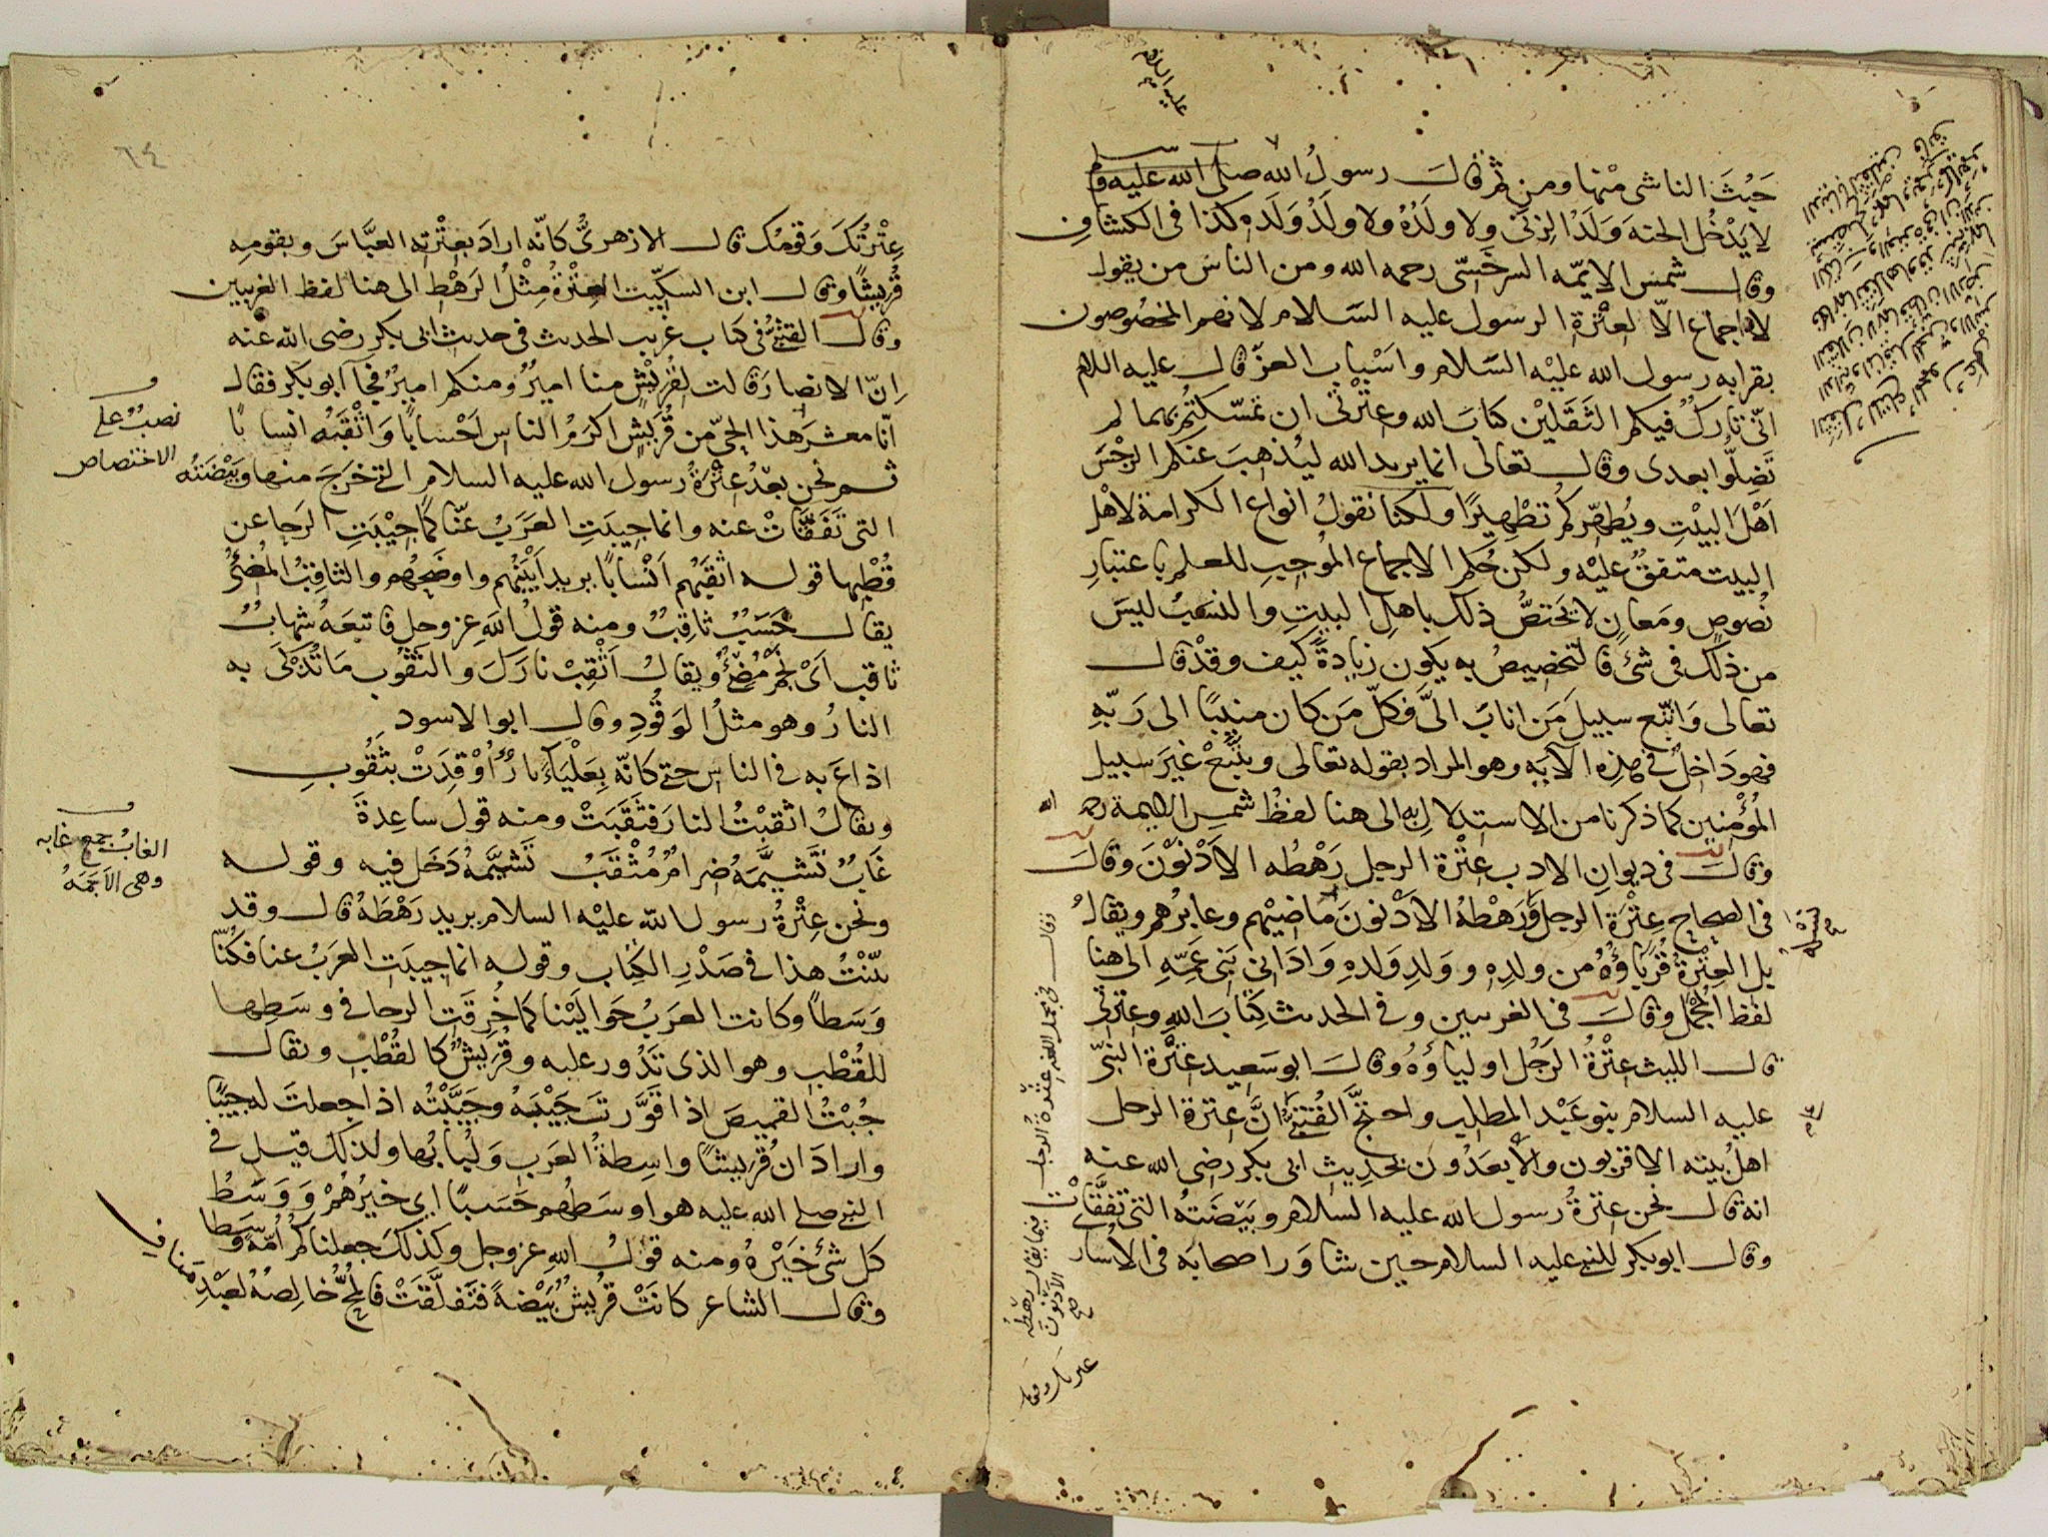 عليه السلام
خبث الناشى منها ومن ثم قال رسول الله صلى الله عليه وسلم
لا يَدْخُل الجنة وَلَدُ الزِنَى ولا ولَدُهُ ولا ولَدُ وَلَدِه كذا فى الكشاف
وقال شمس الايمّه السرخسّى رحمه الله ومن الناس من يقول
لا اجماع الّا لعِتْرة الرسول عليه السَلام لانهم المخصُوصون
بقرابه رسول الله عليْه السَلام واسْباب العز قال عليه السلام
انّى تارِكٌ فيكم الثَقَلَيْن كتابَ الله وعِتْرتى ان تمسّكتم بهما لم
تَضِلُّوا بعدى وقال تعالى انما يريد الله ليُذهبَ عنكم الرجْسَ
اَهْلَ البيْتِ ويُطهّركم تَطْهِيْرًا ولكنا نقولُ انواع الكرامة لاهل
البيت متفقٌ عليْه ولكن حُكم الاجماع المُوجِب للعلم باعتبارِ
نُصوصٍ ومَعانٍ لا يَختصُّ ذلك باهلِ البيتِ والنسَبُ ليسَ
من ذلك فى شئ فالتخصيصُ به يكون زيادةً كيف وقدْ قال
تعالى وَاتّبع سبيلَ مَن انابَ الىَّ فكلّ مَن كان منيبًا الى رَبّهِ
فهو داخلٌ فى هذِه الآيَه وهو المراد بقوله تعالى ويتّبعْ غيرَ سبيل
المُؤْمنين كما ذكرنا من الاستدلالِ به الى هنا لفظُ شمسِ الايمة رحمه الله
وقال فى ديوانِ الادب عِتْرة الرجل رَهْطُه الاَدْنَوْنَ وقالَ
فى الصحاح عِتْرَة الرجل وَرَهْطهُ الاَدْنونَ مَاضيْهم وغابرُهم ويقالُ
بل العِتْرَةُ قُرَبَاؤُهُ من ولدِهِ و وَلدِ وَلدهِ وَادَانى بَنى عَمّهِ الى هنا
لفظ المجْمَل وقالَ فى الغريبين وفى الحديث كِتَابَ اللهِ وعِترتى
قال الليث عِتْرةُ الرَجُل اولياؤُهُ وقالَ ابو سَعِيد عِتْرة النبىّ
عليه السلام بنو عَبْد المطلب واحتجَّ القُتَبىُّ انَّ عِترة الرجل
اهلُ بيته الاقربون والأبعَدُون بحَدِيث ابى بكر رضى الله عنه
انه قال نحن عِترةُ رسول الله عليه السلام وبَيْضَتُهُ التى تَفَقَّأَتْ
وقال ابو بكر للنبى عليه السلام حين شاوَر اصحابَه فى الاُسارَ
وقال فى مجمل اللغه عِتْرةُ الرجل فيما يقال رهْطه الاَدْنَوْنَ صح
عترتك وقومك
٦٤
عِتْرتُكَ وَقومُك قال الازهرىُّ كانّه ارادَ بعِتْرتهِ العبَّاسَ وبقومِهِ
قُرَيشًا وقال ابن السكِّيت العِتْرَةُ مِثْلُ الرَهْط الى هنا لفظ الغريبين
وقال القتبىُّ فى كتاب غريب الحديث فى حديث ابى بكر رضى الله عنه
اِنّ الانصار قالت لقُريْشٍ منا اميرٌ ومنكم اميرٌ فجآ ابو بكر فقال
انّا معشرَ هذا الحىّ من قُرَيشٍ اكرَمُ الناسِ اَحْسابًا وَاَثْقَبُه انسابًا
ثم نحن بعْدُ عِتْرةُ رسول الله عليه السلام التى خرَجَ منها وبَيْضَتُه
التى تَفَقَّأتْ عنه وانما جِيبَتِ العرَبُ عنّا كما جِيْبَتِ الرَحا عن
قُطْبِها قوله اثقبُهم اَنْسابًا يريد اَبْيَنُهم واوضَحِهُم والثاقِبُ المُضئُ
يقال حَسَبٌ ثاقِبٌ ومنه قولُ اللهِ عز وجل فاتبعَهُ شهابٌ
ثاقب اَىْ نجْمٌ مُضئٌ ويقالُ اَثْقِبْ نارَكَ والثَقُوب مَا تُذكَى به
النارُ وهو مثلُ الوَقُودِ وقال ابو الاسود
اذاعَ به فى الناس حتى كانّه بِعَلْياءَ نارٌ اُوْقِدَتْ بثَقُوبِ
ويقالُ اثقبْتُ النارَ فثَقَبَتْ ومنه قول ساعِدةَ
غَابٌ تَشَيَّمَهُ ضِرامٌ مُثْقَبُ تَشيَّمَهُ دَخَل فيه وقوله
ونحن عِتْرةُ رسول الله عليْه السلام يريد رَهْطَهُ قال وقد
بيّنْتُ هذا فى صَدْرِ الكِتاب وقوله انما جِيبَت العرَبُ عنا فكُنّا
وَسَطاً وكانت العرَبُ حَوالَيْنا كما خُرِقَتِ الرحا فى وسَطِها
للقُطْبِ وهو الذى تَدُور عليه وقُرَيشٌ كالقُطْبِ ويقال
جُبْتُ القميصَ اذا قوَّرتَ جَيْبَهُ وجَيَّبْتُه اذا جعلتَ له جيبًا
واراد ان قُرَيشًا واسِطةُ العرَب ولُبابُها ولذلك قيل فى
النبى صلى الله عليه هو اوسَطُهم حَسَبًا اى خيرُهُمْ وَوَسَطُ
كل شئ خَيْرُهُ ومنه قولُ اللهِ عز وجل وكذلكَ جعلناكم اُمّةً وَسَطا
وقال الشاعر كانَتْ قُريْشٌ بَيْضةً فتَفلَّقَتْ فالمُحُّ خالِصُهُ لعَبْدِ مَنافِ
نصبٌ على
الاختصاص
الغابُ جمع غابه
وهى الاَجَمَهُ